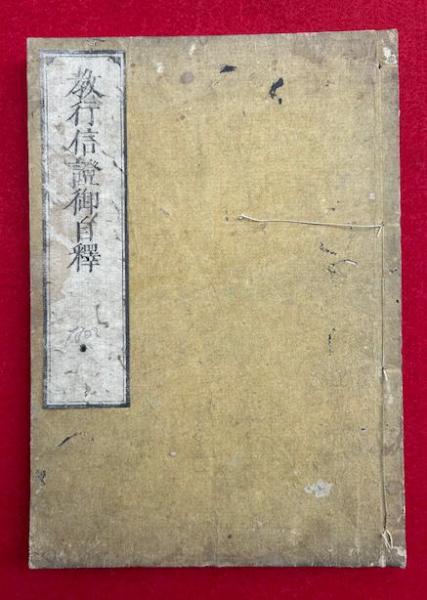 教行信證御自釋